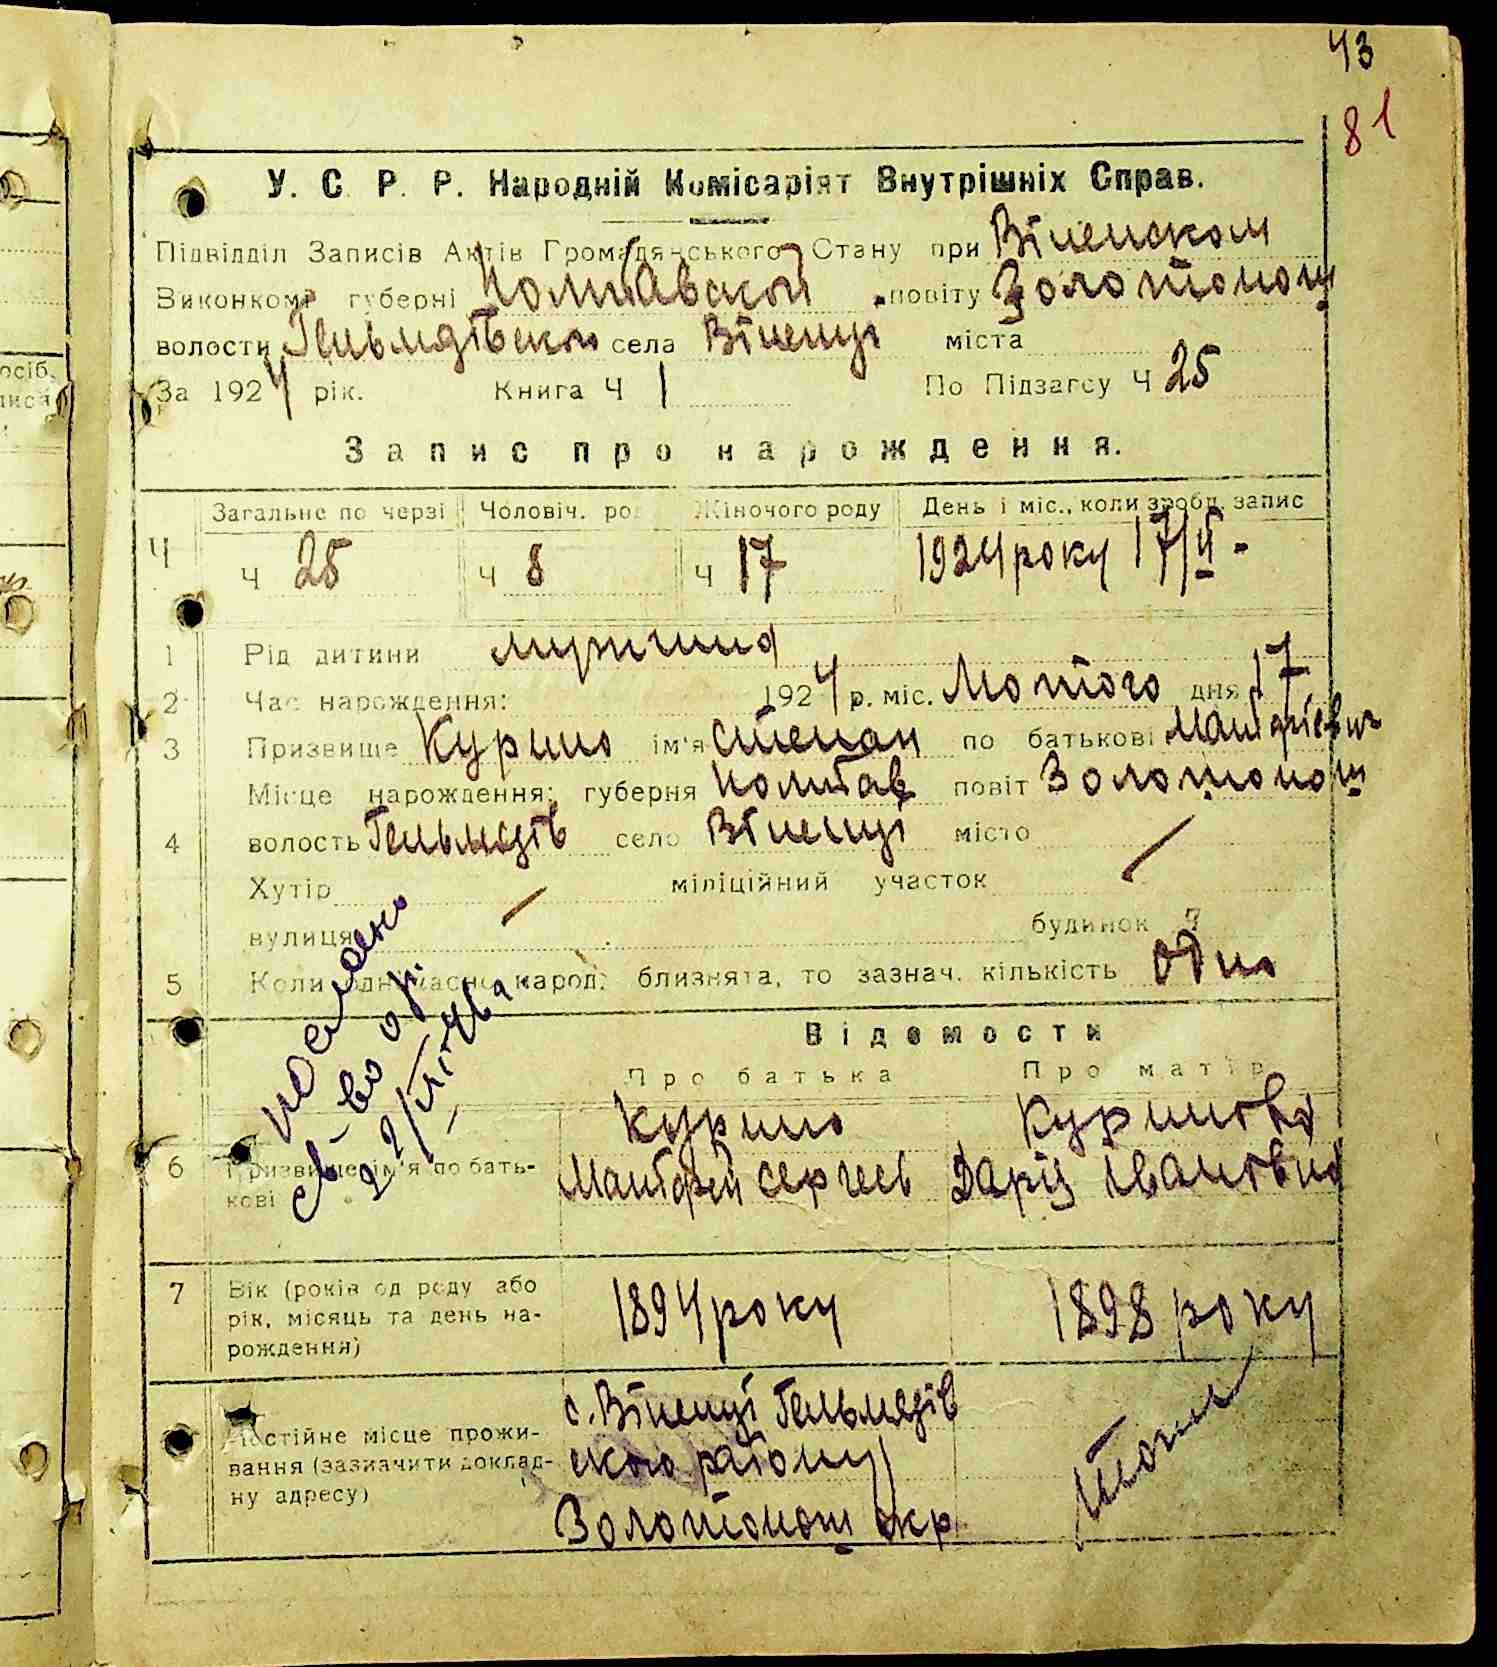 43
81
У. С. Р. Р. Народній Комісаріят Внутрішніх Справ.
Підвідділ Записів Актів Громадянського Стану при Віненском
Виконкомі губерні Полтавской повіту Золотонош
волости Гельмязівско села Віненці міста
За 1924 рік. Книга Ч 1 По Підзагсу Ч 25
Запис про нарождення.
Загальне по черзі Чоловіч. род Жіночого роду День і міс., коли зробл. запис
Ч Ч 25 Ч 8 Ч 17 1924 року 17/II-
1 Рід дитини мужчина
2 Час нарождення: 1924 р. міс. Лютого дня 17
3 Призвище Куришо ім'я Степан по батькові Матфієвич
Місце нарождення: губерня Полтав повіт Золотонош
4 волость Гельмязів село Віненці місто —
Хутір — міліційний участок
вулиця будинок
5 Коли одночасно народ. близнята, то зазнач. кількість одно
Відомости
Про батька Про матір
Куришо Куришова
6 Призвище ім'я по бать- Матфей Сергеев Дарія Івановна
кові
7 Вік (років од роду або 1894 року 1898 року
рік, місяць та день на-
рождення)
с. Віненці Гельмязів
Постійне місце прожи- ского району
вання (зазначити доклад-
ну адресу) Золотонош окр